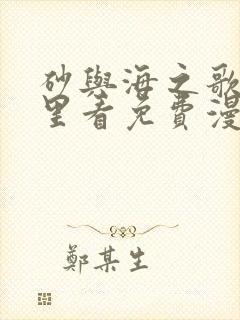 砂與海之歌
里看免費漫
鄭某生